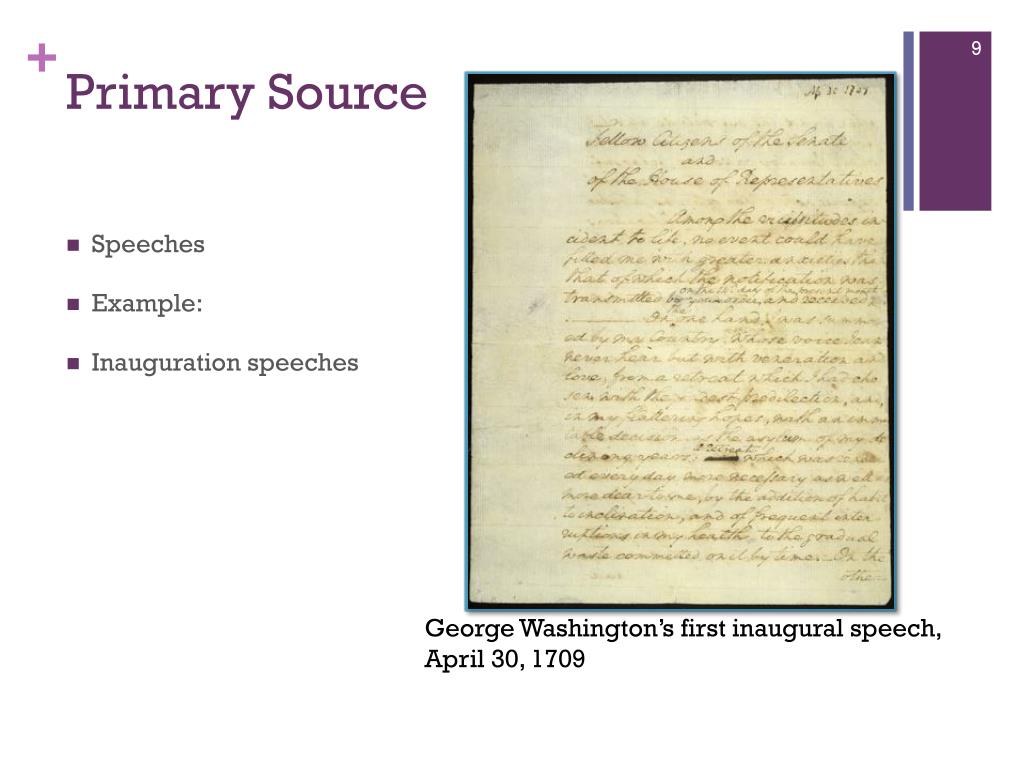 9
+
Primary Source
Speeches
Example:
Inauguration speeches
Ap 30 1789
Fellow Citizens of the Senate
and
of the House of Representatives
Among the vicissitudes in
cident to life, no event could have
filled me with greater anxieties than
that of which the notification was
on the 14th day of the present month
transmitted by your order, and received
On the one hand, I was summon
ed by my Country, whose voice I can
never hear but with veneration and
love, from a retreat which I had cho
sen with the fondest predilection, and,
in my flattering hopes, with an immu
table decision, as the asylum of my de
a retreat
clining years: which was rende
ed every day more necessary as well as
more dear to me, by the addition of habit
to inclination, and of frequent inter
ruptions in my health to the gradual
waste committed on it by time. On the
other
George Washington’s first inaugural speech,
April 30, 1709